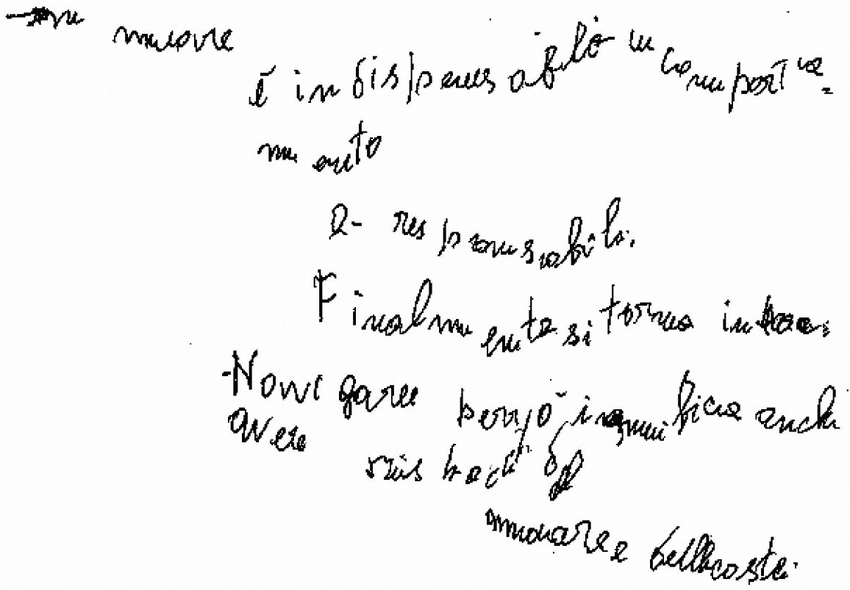 muovre
è indispensabile un comporta=
mento
e- responsabile.
Finalmente si torna in
-Navigare però significa anche
avere
rispetto del
mare e delle coste.